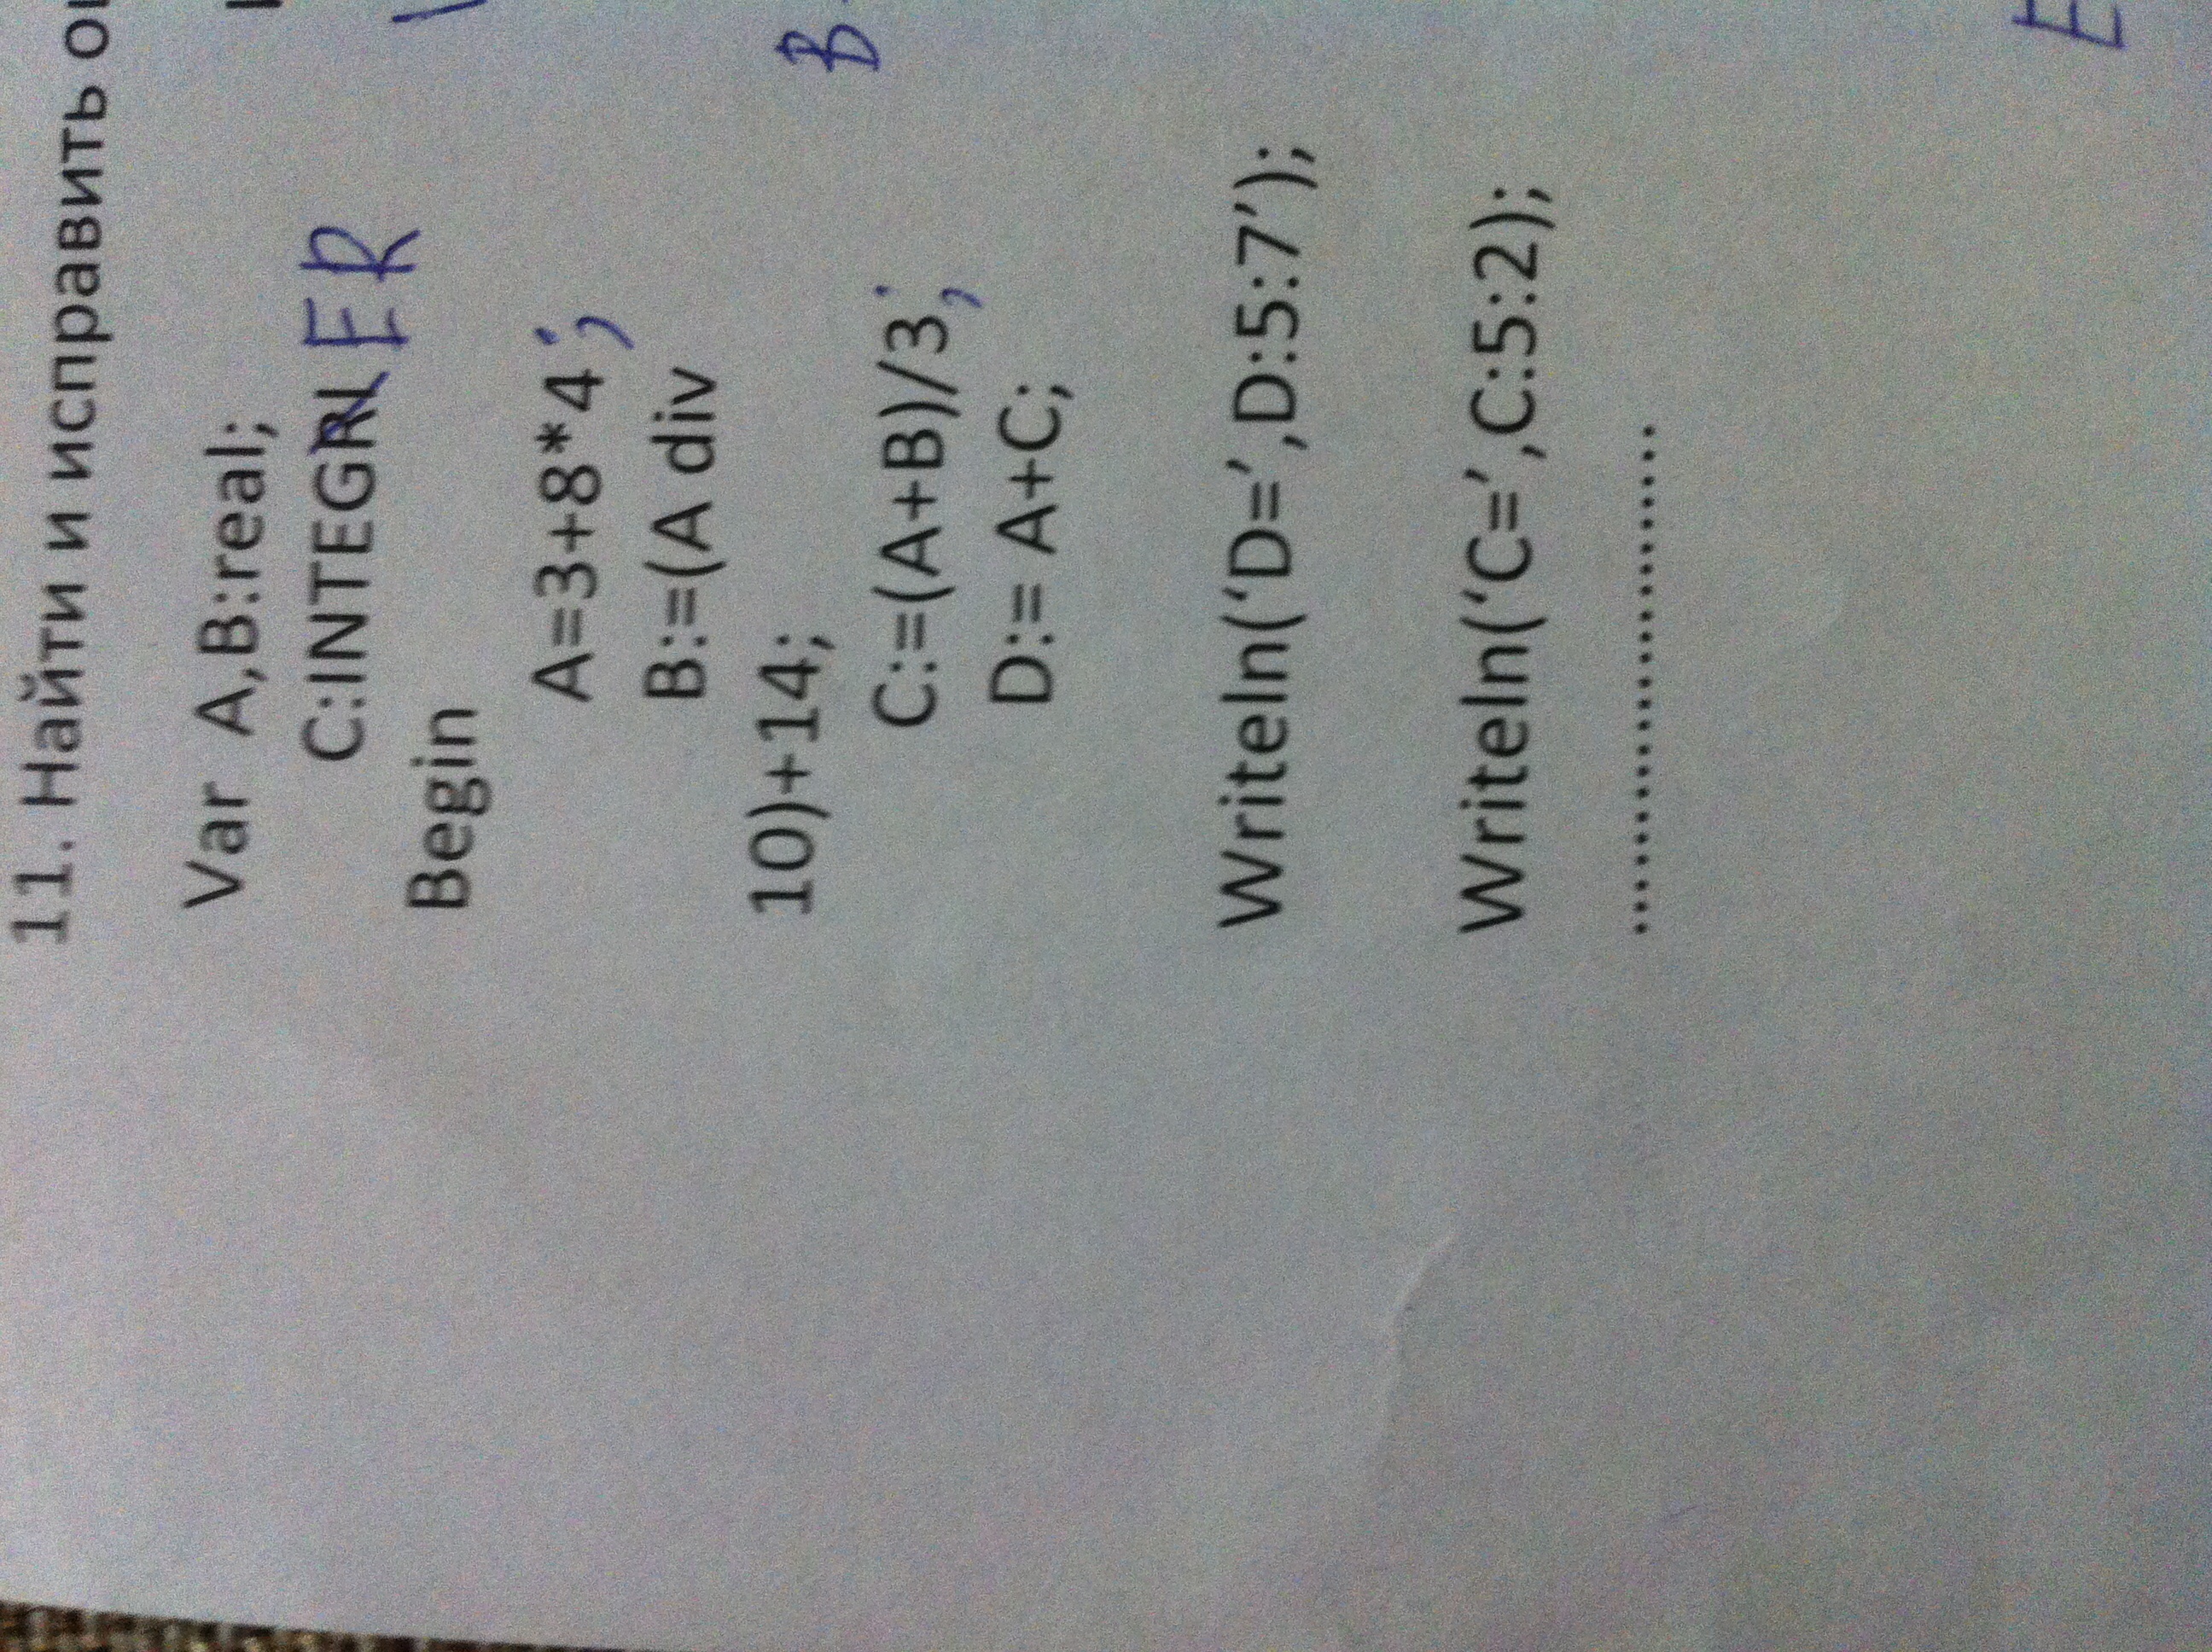 11. Найти и исправить
Var A,B:real;
C:INTEGRL ER
Begin
A=3+8*4;
B:=(A div
10)+14;
B
C:=(A+B)/3;
D:= A+C;
Writeln(‘D=’,D:5:7’);
Writeln(‘C=’,C:5:2);
..............................
E